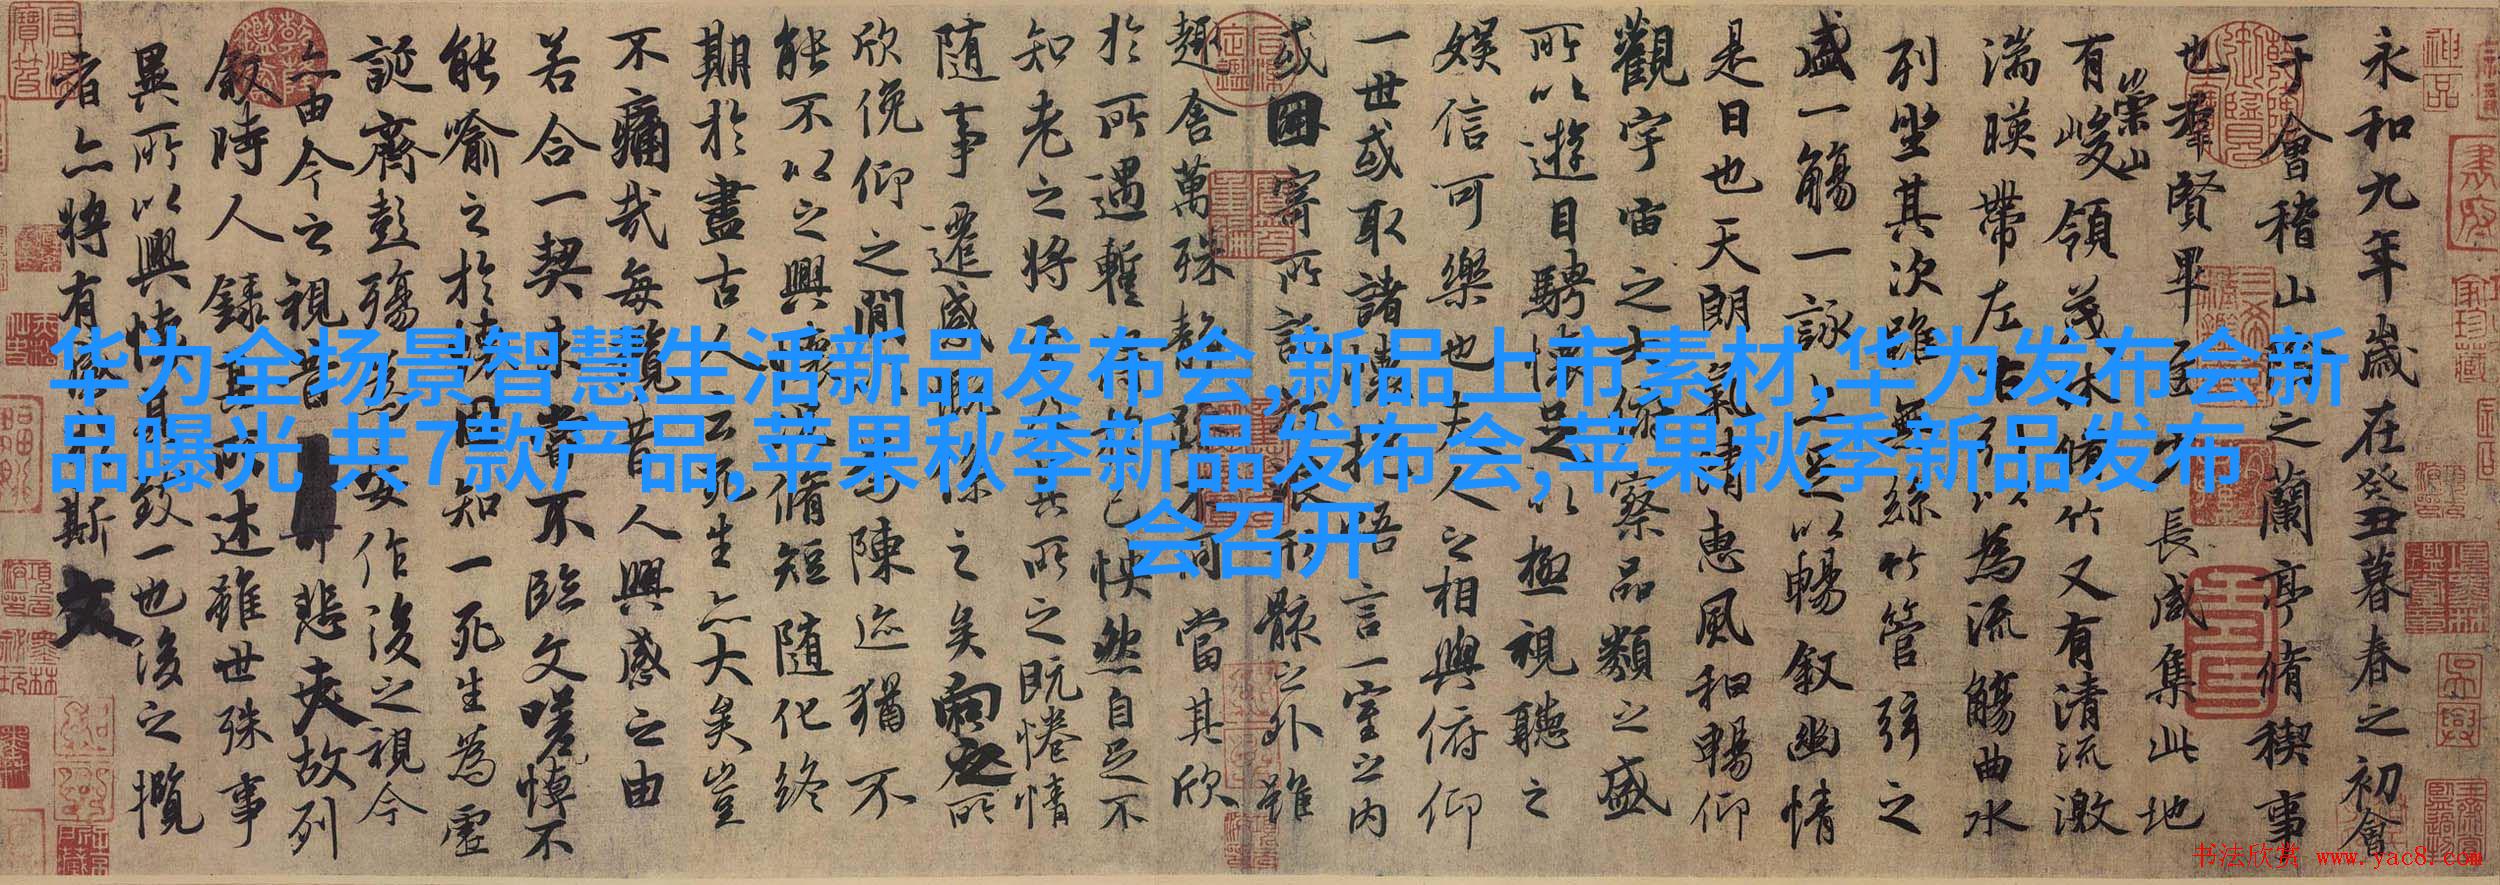 华为全场景智慧生活新品发布会,新品上市素材,华为发布会新
品曝光 共7款产品,苹果秋季新品发布会,苹果秋季新品发布
会召开
永和九年歲在癸丑暮春之初會
于會稽山陰之蘭亭脩稧事
也羣賢畢至少長咸集此地
有崇山峻領茂林脩竹又有清流激
湍暎帶左右引以為流觴曲水
列坐其次雖無絲竹管弦之
盛一觴一詠亦足以暢敘幽情
是日也天朗氣清惠風和暢仰
觀宇宙之大俯察品類之盛
所以遊目騁懷足以極視聽之
娛信可樂也夫人之相與俯仰
一世或取諸懷抱悟言一室之內
或因寄所託放浪形骸之外雖
趣舍萬殊靜躁不同當其欣
於所遇暫得於己怏然自足不
知老之將至及其所之既惓情
隨事遷感慨係之矣向之所
欣俛仰之間以為陳迹猶不
能不以之興懷況脩短隨化終
期於盡古人云死生亦大矣豈
不痛哉每覽昔人興感之由
若合一契未嘗不臨文嗟悼不
能喻之於懷固知一死生為虛
誕齊彭殤為妄作後之視今
亦由今之視昔悲夫故列
敘時人錄其所述雖世殊事
異所以興懷其致一也後之攬
者亦將有感於斯文
书法欣赏 www.yac8.com